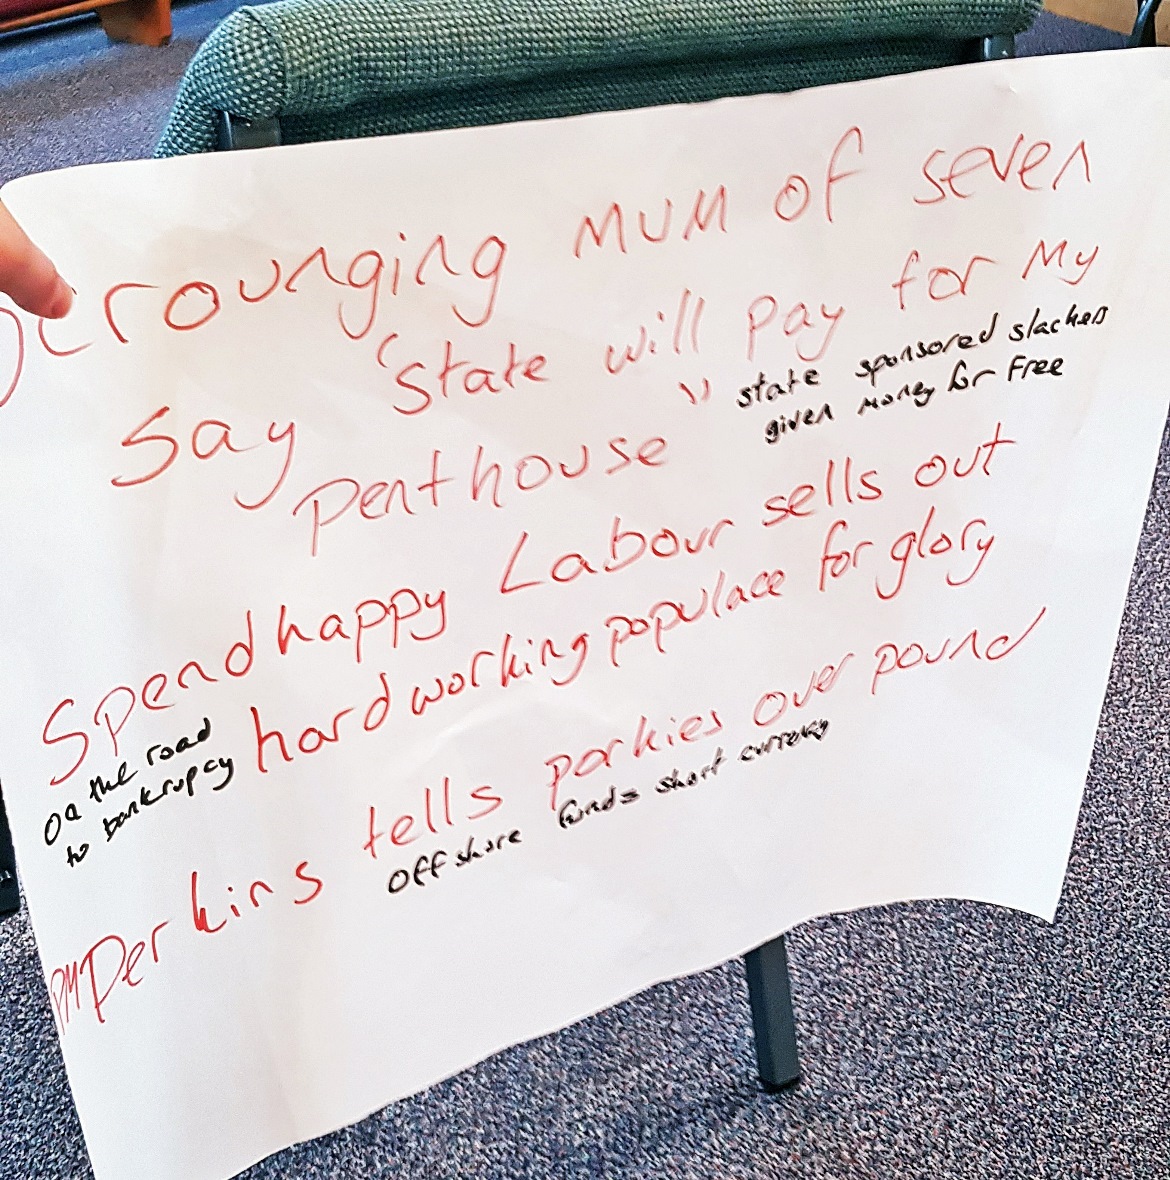 Scrounging MUM of seven
Say "State will pay for My
penthouse"
state sponsored slackers
given money for Free
Spend happy Labour sells out
hard working populace for glory
on the road
to bankrupcy
PM Perkins tells porkies over pound
offshore funds short currency